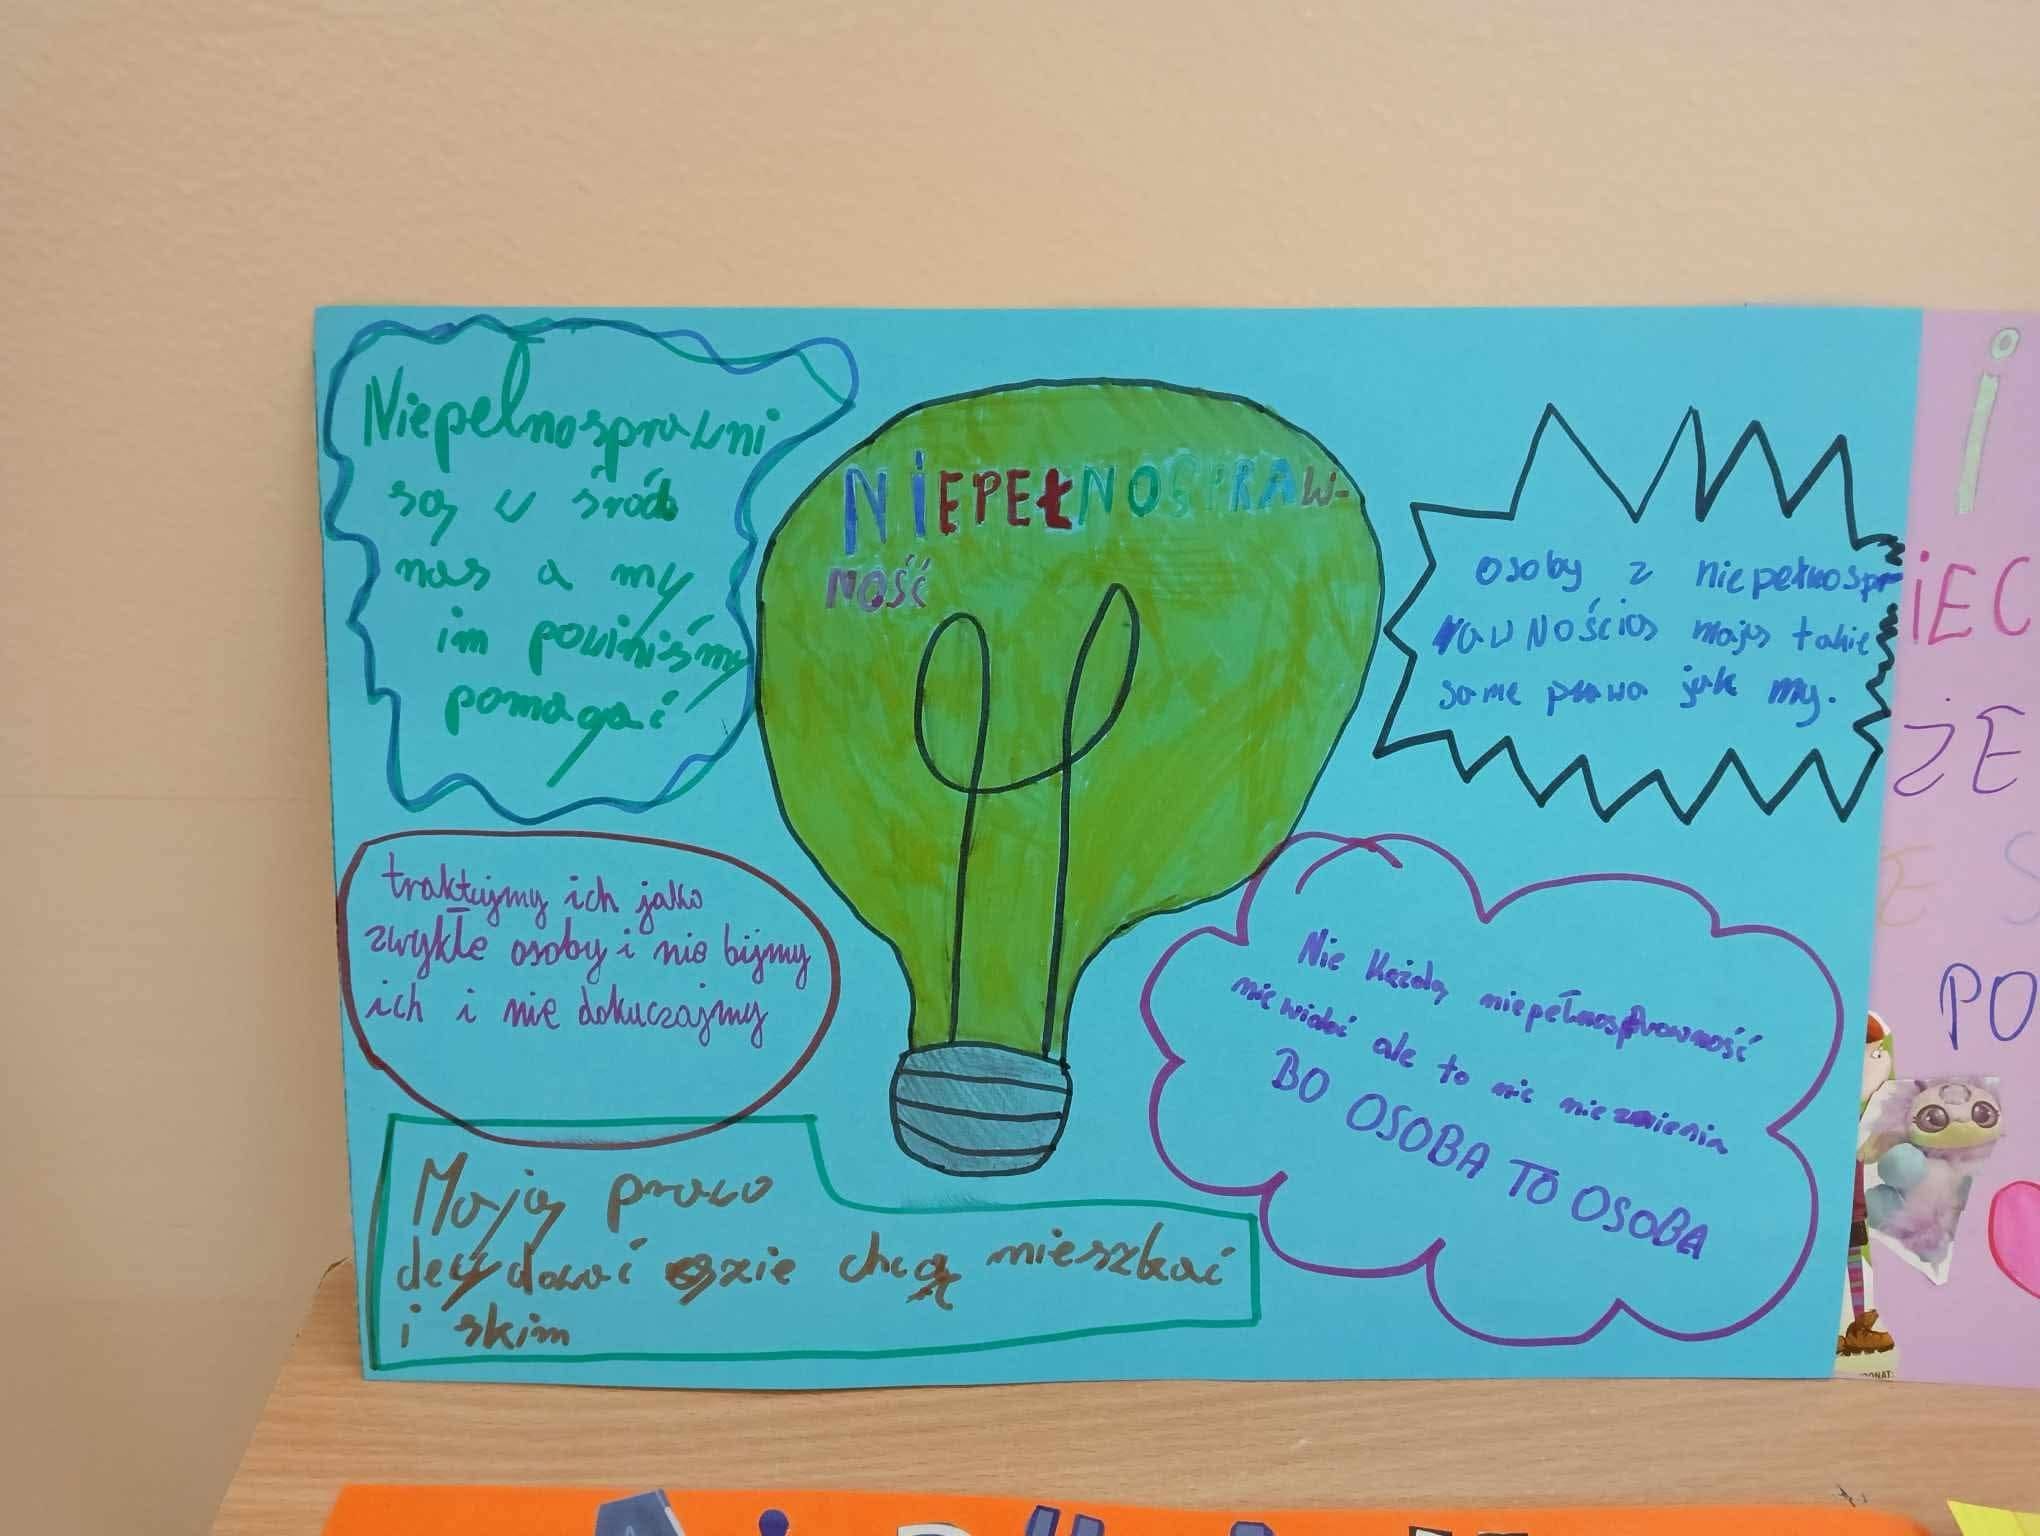 NIEPEŁNOSPRAW-
NOŚĆ
Niepełnosprawni
są w śród
nas a my
im powiniśmy
pomagać
osoby z niepełnospr
rawNOŚcią mają takie
same prawa jak my.
traktujmy ich jako
zwykłe osoby i nie bijmy
ich i nie dokuczajmy
Nie każdą niepełnosprawność
nie widać ale to nic nie zmienia
BO OSOBA TO OSOBA
Mają prawo
decydować gdzie chcą mieszkać
i skim
i
iEC
ŻE
E S
PO